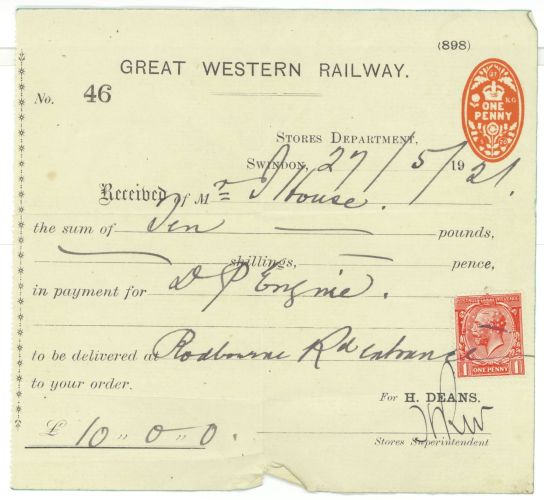 (898)
GREAT WESTERN RAILWAY.
No. 46
ONE PENNY
STORES DEPARTMENT,
SWINDON, 27/5/1921.
Received of Mr House.
the sum of Ten — pounds,
— shillings, — pence,
in payment for D P Engine.
to be delivered at Rodbourne Rd entrance
to your order.
1 ONE PENNY 1
For H. DEANS.
£ 10 " 0 " 0.
Stores Superintendent